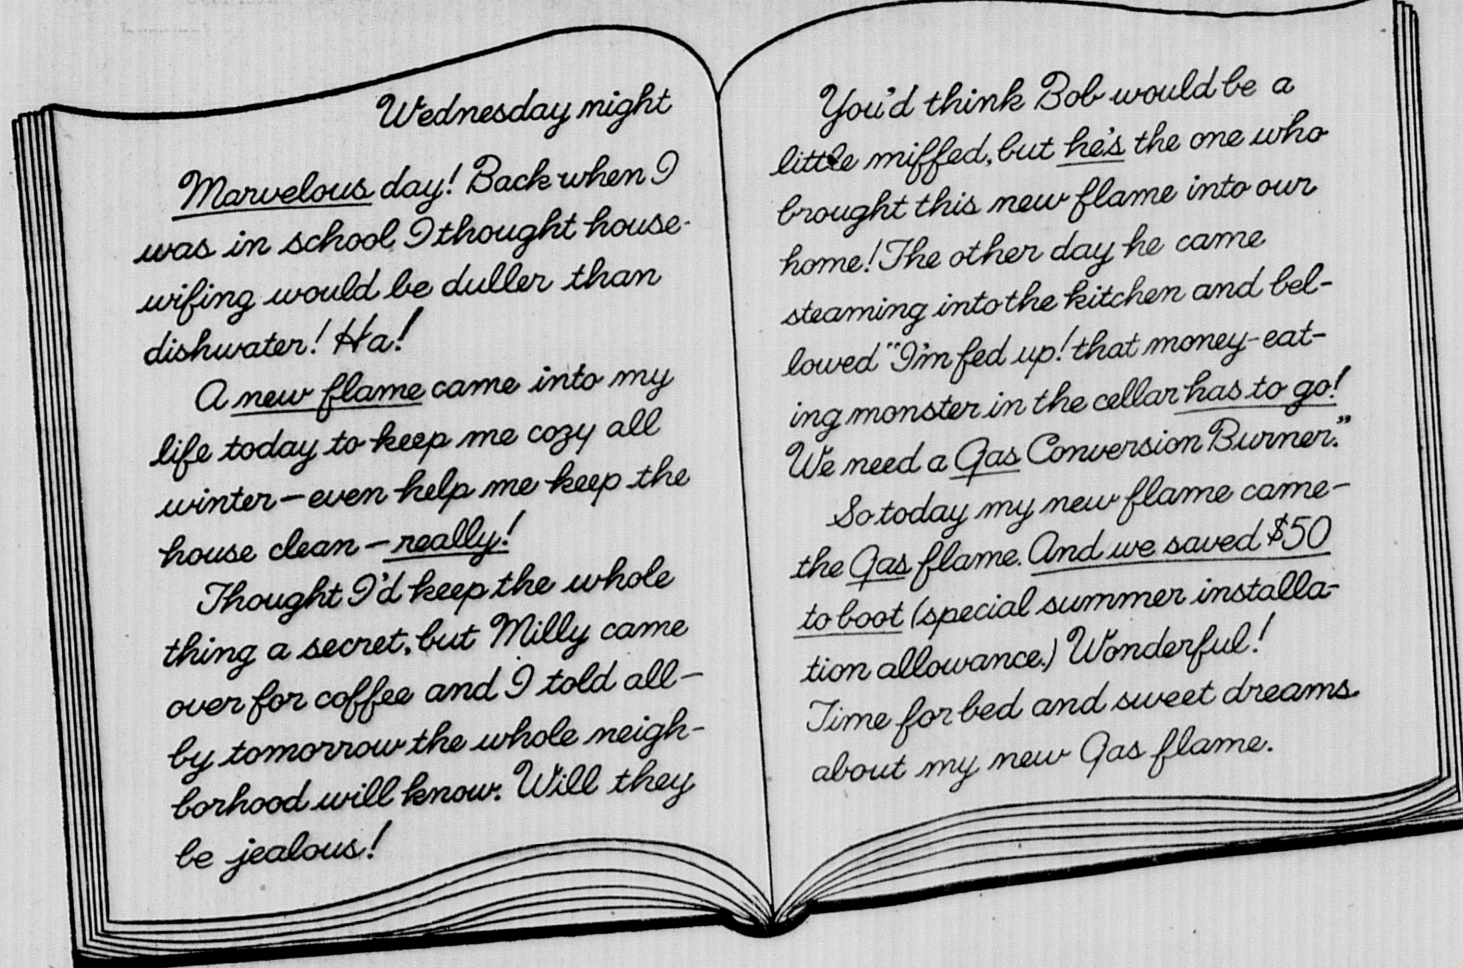 Wednesday night
Marvelous day! Back when I
was in school, I thought house-
wifing would be duller than
dishwater! Ha!
A new flame came into my
life today to keep me cozy all
winter—even help me keep the
house clean—really!
Thought I'd keep the whole
thing a secret, but Milly came
over for coffee and I told all—
by tomorrow the whole neigh-
borhood will know. Will they
be jealous!
You'd think Bob would be a
little miffed, but he's the one who
brought this new flame into our
home! The other day he came
steaming into the kitchen and bel-
lowed "I'm fed up! that money-eat-
ing monster in the cellar has to go!
We need a Gas Conversion Burner."
So today my new flame came—
the Gas flame. And we saved $50
to boot (special summer installa-
tion allowance.) Wonderful!
Time for bed and sweet dreams
about my new Gas flame.